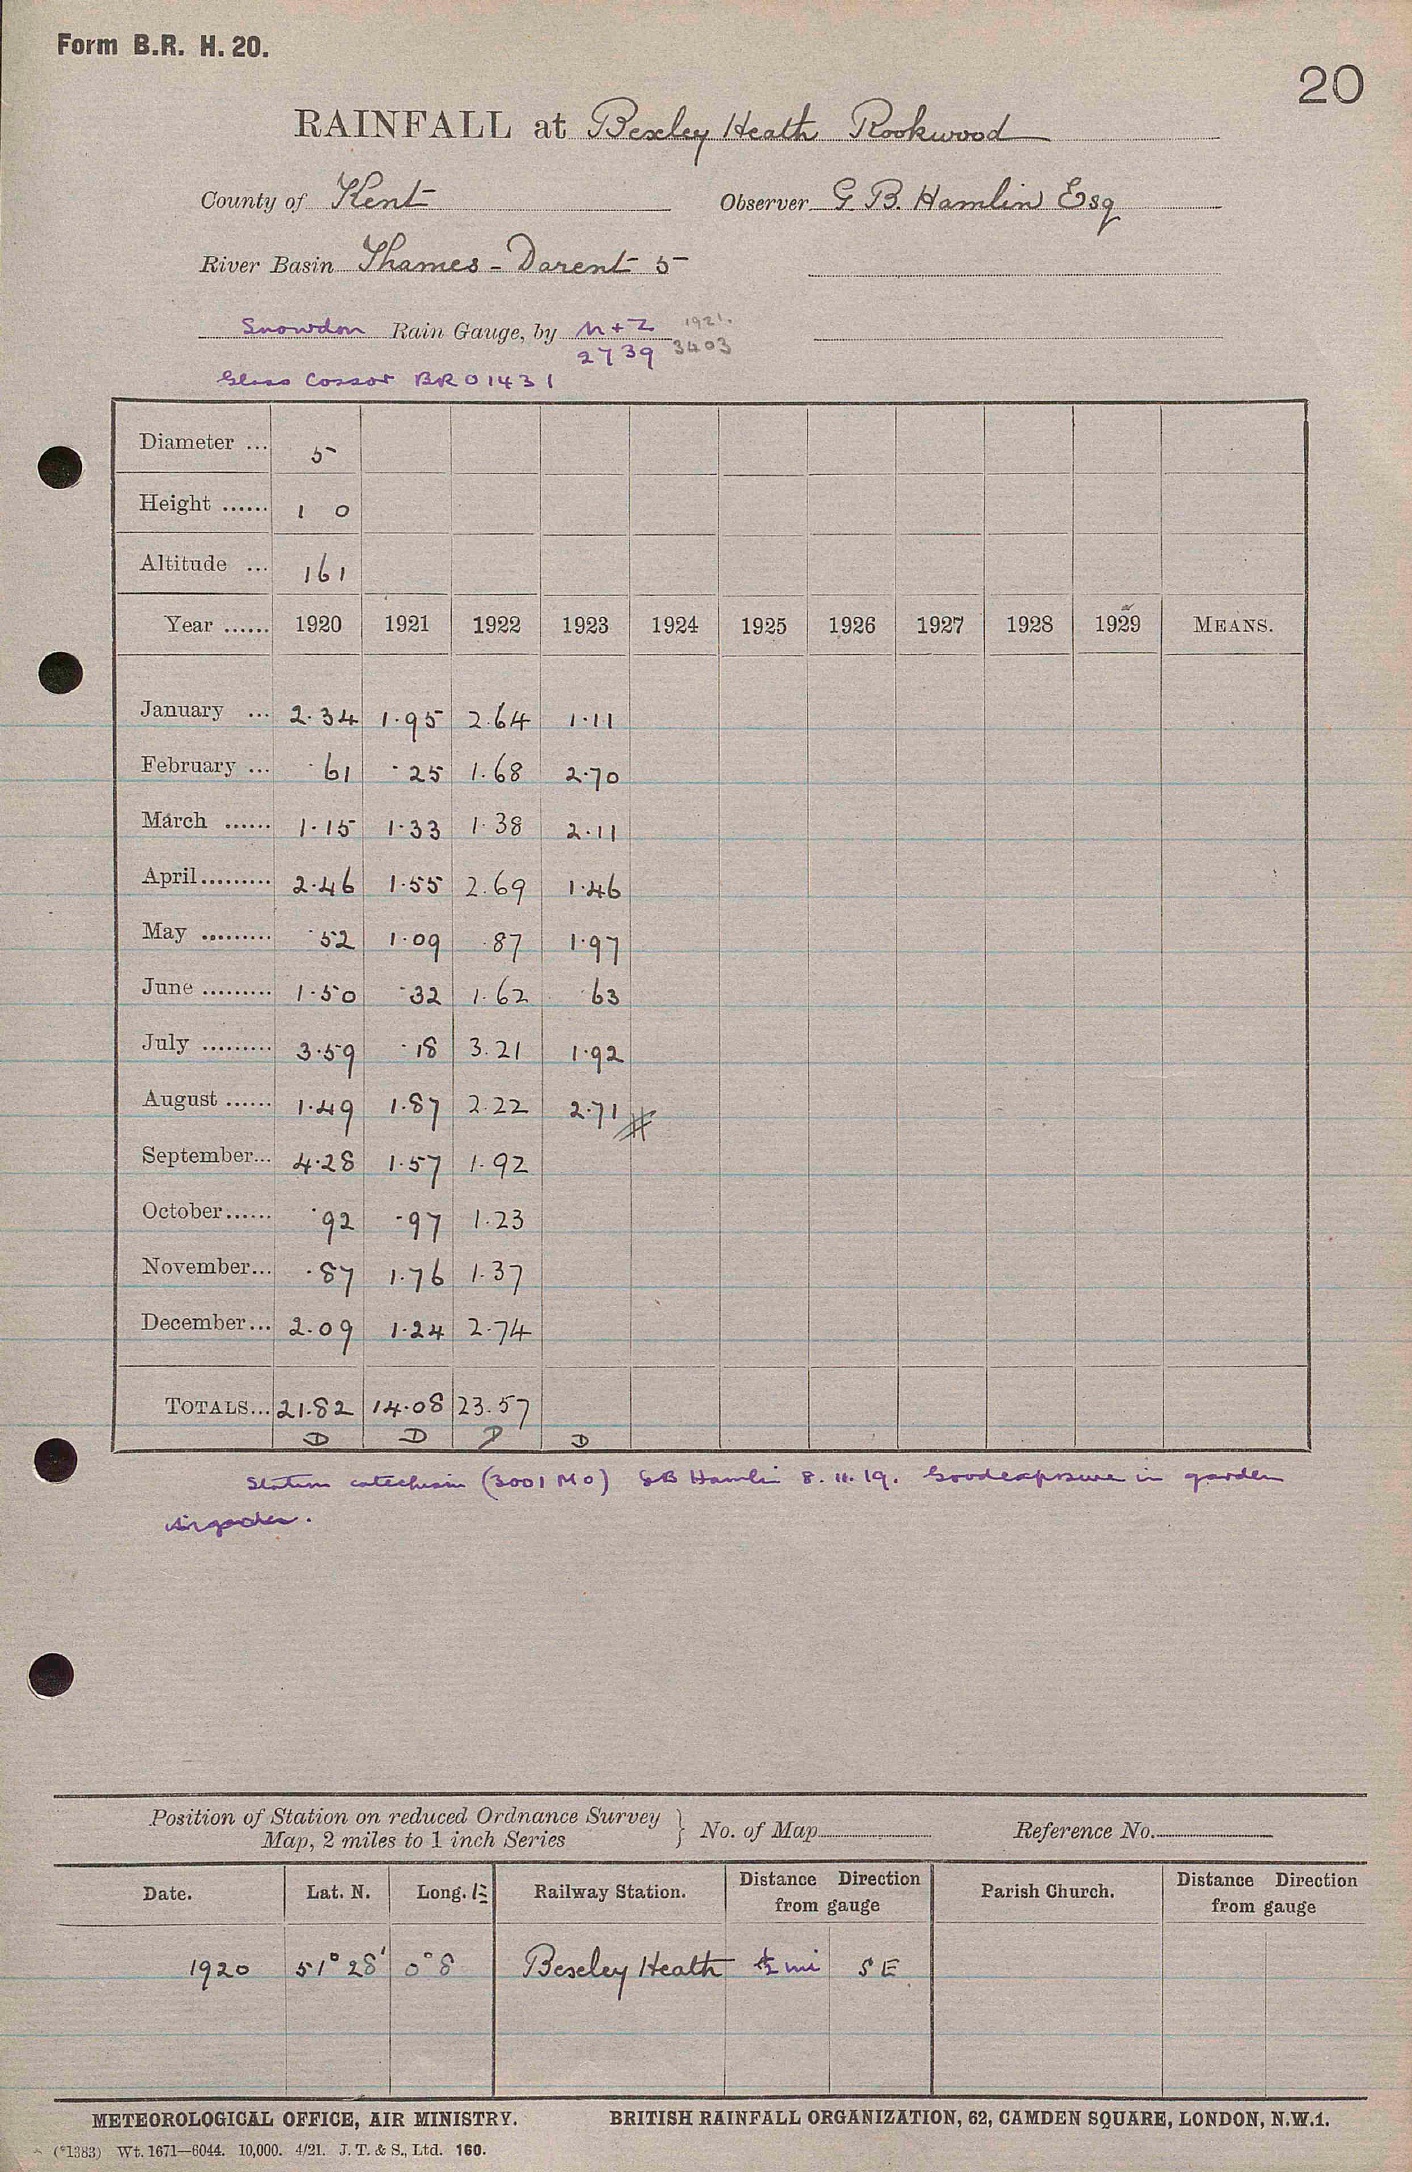 Form B.R. H. 20.
20
RAINFALL at Bexley Heath Rookwood
County of Kent Observer G. B. Hamlin Esq
River Basin Thames - Darent 5
Snowdon Rain Gauge, by N + Z 1921.
2739 3403
Glass Cossor BR 01431
Diameter ... 5
Height ...... 1 0
Altitude ... 161
Year ...... 1920 1921 1922 1923 1924 1925 1926 1927 1928 1929 MEANS.
January ... 2.34 1.95 2.64 1.11
February ... .61 .25 1.68 2.70
March ...... 1.15 1.33 1.38 2.11
April ......... 2.46 1.55 2.69 1.46
May ......... .52 1.09 .87 1.97
June ......... 1.50 .32 1.62 .63
July ......... 3.59 .18 3.21 1.92
August ...... 1.49 1.87 2.22 2.71 #
September... 4.28 1.57 1.92
October...... .92 .97 1.23
November... .87 1.76 1.37
December... 2.09 1.24 2.74
TOTALS... 21.82 14.08 23.57
D D D D
Station catechism (3001 MO) GB Hamlin 8.11.19. Good exposure in garden
Position of Station on reduced Ordnance Survey
Map, 2 miles to 1 inch Series } No. of Map Reference No.
Date. Lat. N. Long. E Railway Station. Distance Direction from gauge Parish Church. Distance Direction from gauge
1920 51° 28' 0° 8 Bexley Heath ½ mi S E.
METEOROLOGICAL OFFICE, AIR MINISTRY. BRITISH RAINFALL ORGANIZATION, 62, CAMDEN SQUARE, LONDON, N.W.1.
(*1383) Wt. 1671—6044. 10,000. 4/21. J. T. & S., Ltd. 160.